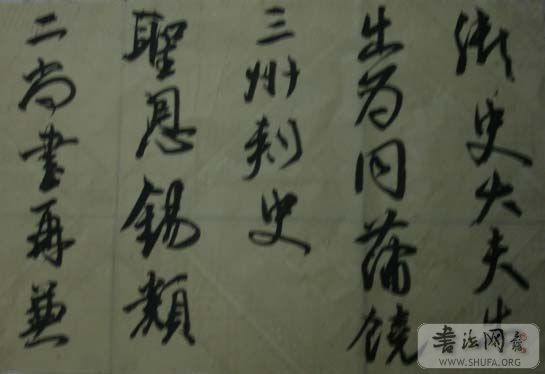 御史大夫
出为同蒲饶
三州刺史
聖恩錫類
二尚書再兼
书法网
WWW.SHUFA.ORG